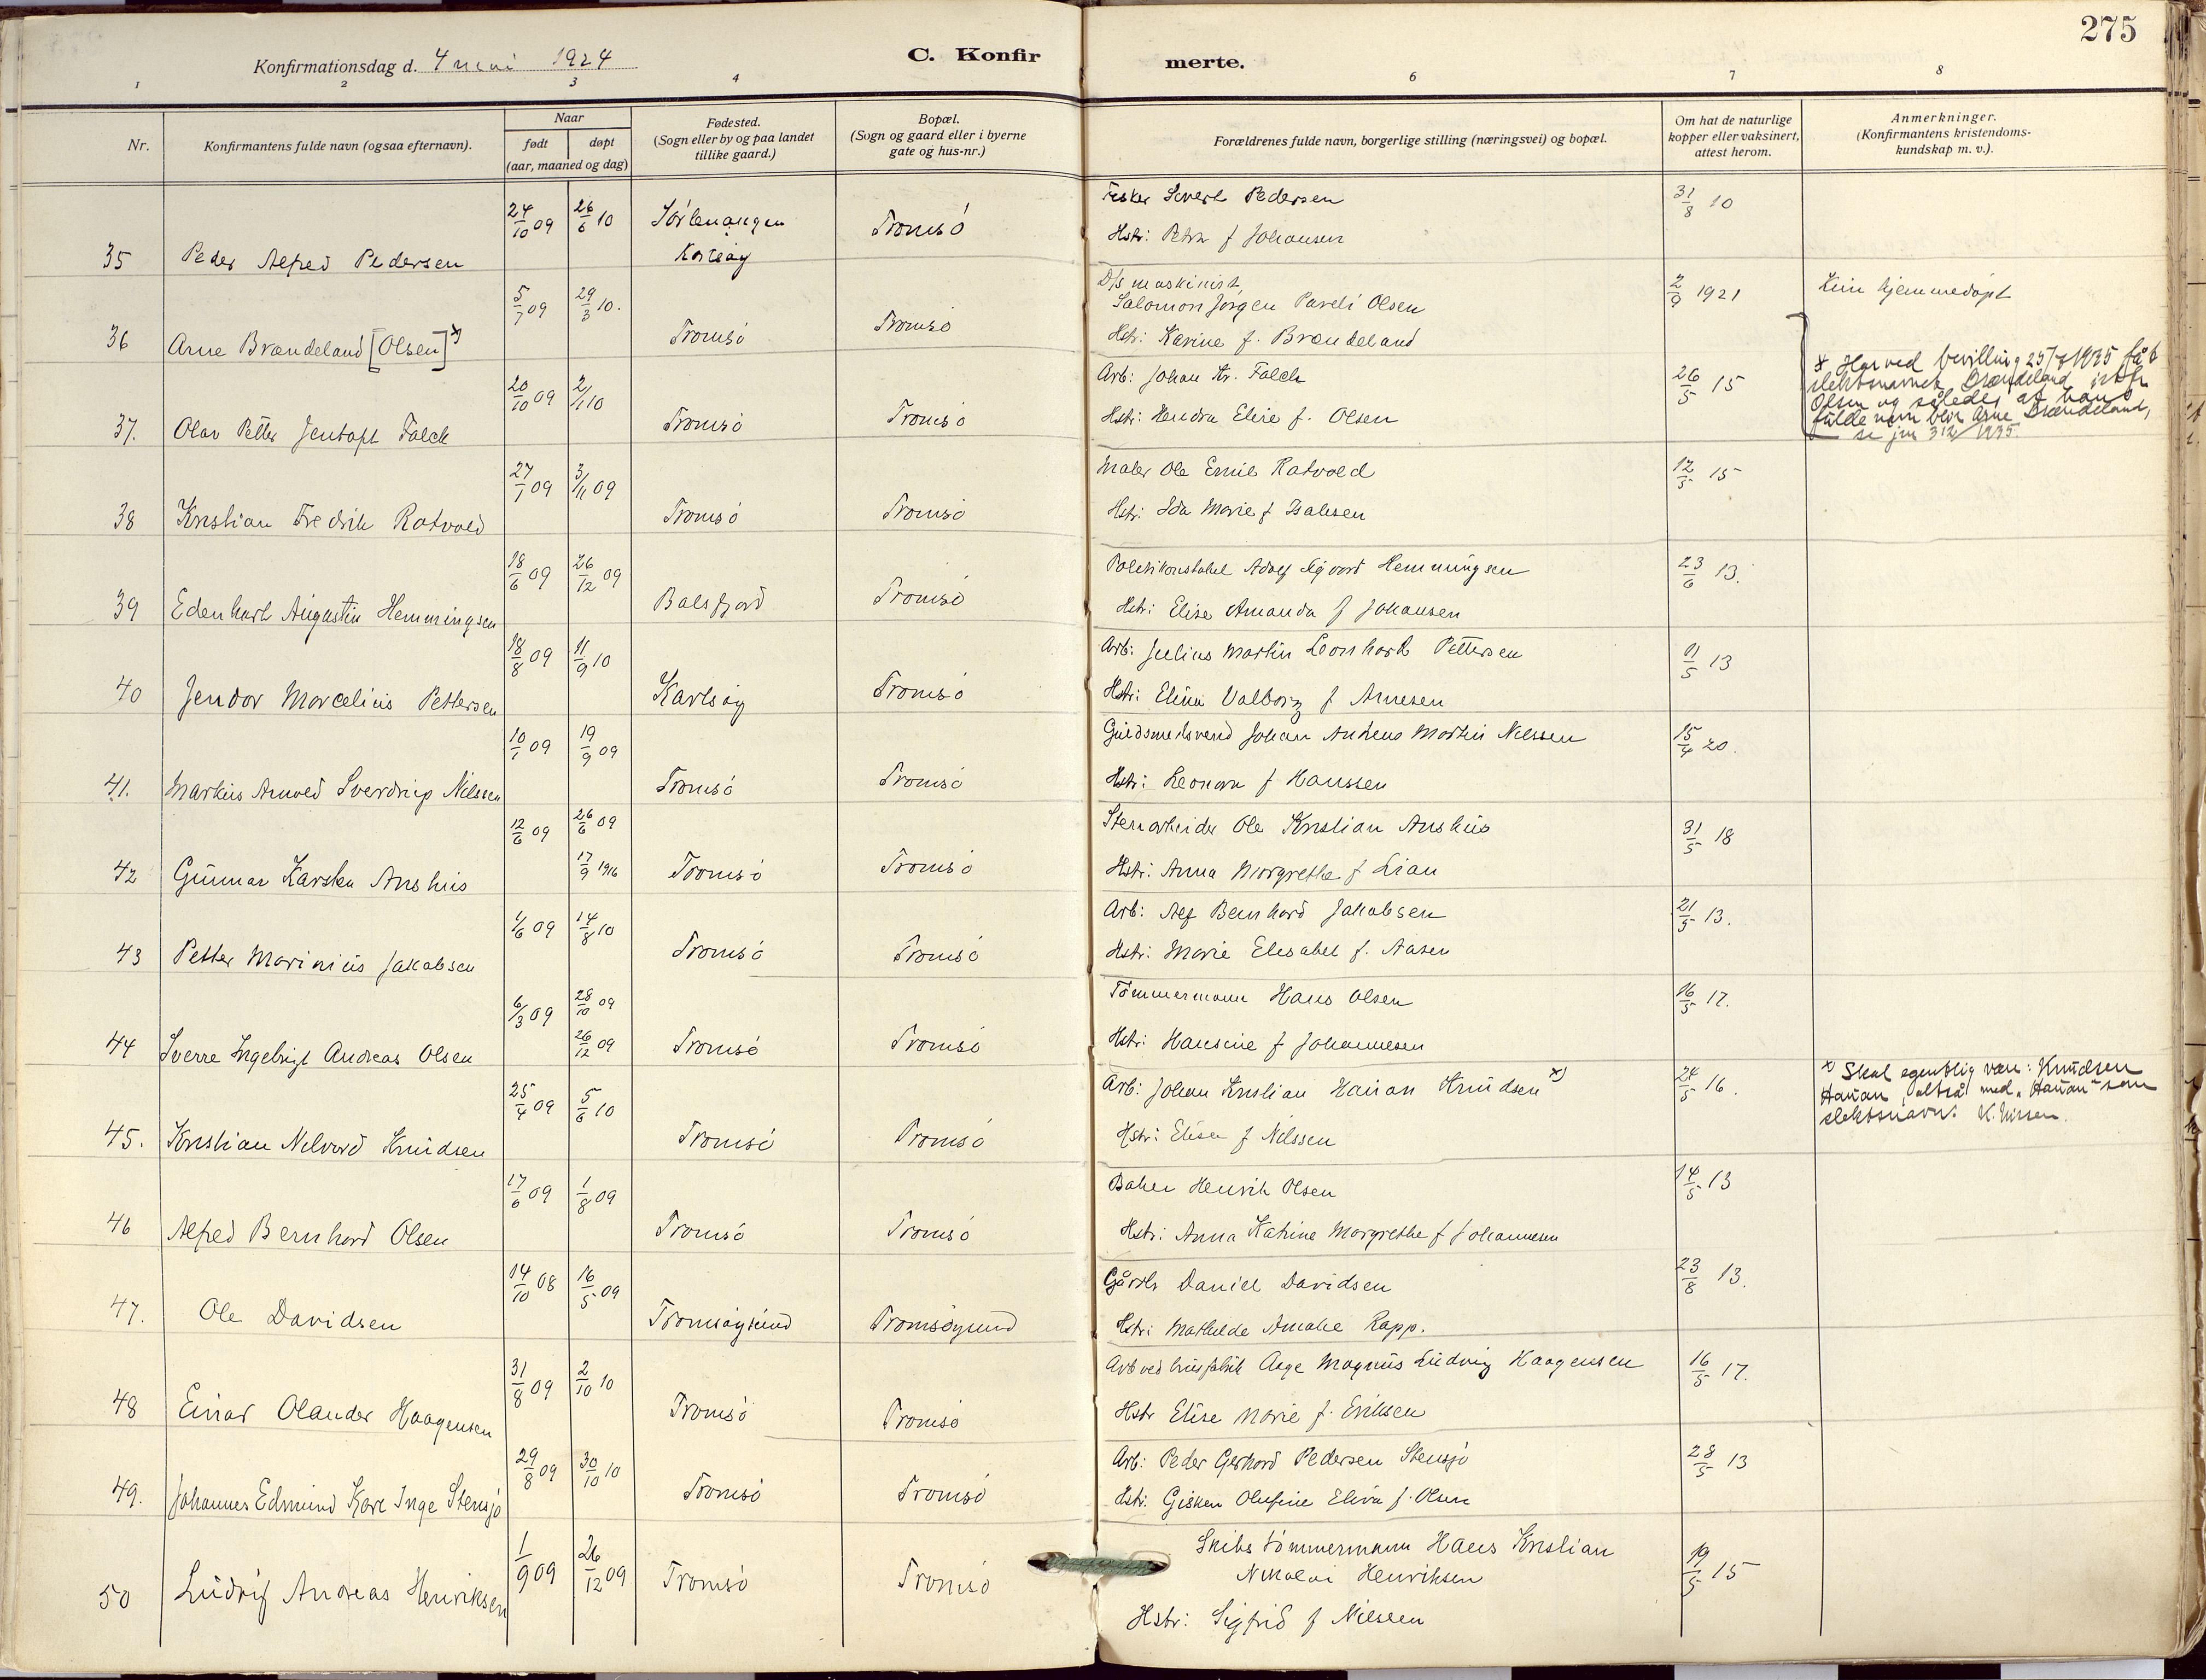 275
Konfirmationsdag d. 4 mai 1924
C. Konfirmerte.
1 2 3 4 6 7 8
Nr.
Konfirmantens fulde navn (ogsaa efternavn).
Naar
født
døpt
(aar, maaned og dag)
Fødested.
(Sogn eller by og paa landet
tillike gaard.)
Bopæl.
(Sogn og gaard eller i byerne
gate og hus-nr.)
Forældrenes fulde navn, borgerlige stilling (næringsvei) og bopæl.
Om hat de naturlige
kopper eller vaksinert,
attest herom.
Anmerkninger.
(Konfirmantens kristendoms-
kundskap m. v.).
35 Peder Alfred Pedersen 24/10 09 26/6 10 Sörlenangen Karlsöy Tromsö
Fisker Sivert Pedersen 31/8 10
Hstr: Petra f Johansen
36 Arne Brændeland [Olsen] x) 5/7 09 29/3 10. Tromsö Tromsö
D/s maskinist,
Salomon Jørgen Pareli Olsen 2/9 1921 Kun hjemmedöpt
Hstr: Karine f. Brændeland
x Har ved bevilling 25/7 1935 fåt
slektsnavnet Brændeland istf.
Olsen og således at hans
fulde navn blir Arne Brændeland,
se jnr 312/1935.
37. Olav Petter Jentoft Falck 20/10 09 2/11 10 Tromsö Tromsö
Arb: Johan Kr. Falck 26/5 15
Hstr: Hendra Elise f. Olsen
38 Kristian Fredrik Ratvold 27/1 09 3/11 09 Tromsö Tromsö
Maler Ole Emil Ratvold 12/5 15
Hstr: Ida Marie f Isaksen
39 Edenhart Augustin Hemmingsen 18/6 09 26/12 09 Balsfjord Tromsö
Politikonstabel Adolf Sigvard Hemmingsen 23/6 13.
Hstr: Elise Amanda f Johansen
40 Jendor Marcelius Pettersen 18/8 09 11/9 10 Karlsöy Tromsö
Arb: Julius Martin Leonhard Pettersen 11/5 13
Hstr: Elina Valborg f Arnesen
41. Markus Arnold Sverdrup Nilssen 10/1 09 19/9 09 Tromsö Tromsö
Guldsmedsvend Johan Antheus Martin Nilssen 15/4 20.
Hstr: Leonora f Hanssen
42 Gunnar Karsten Anshus 12/6 09 26/6 09 17/9 1916 Tromsö Tromsö
Stenarbeider Ole Kristian Anshus 31/5 18
Hstr: Anna Margrethe f Lian
43 Petter Marinius Jakobsen 1/6 09 14/8 10 Tromsö Tromsö
Arb: Alf Bernhard Jakobsen 21/5 13.
Hstr: Marie Elisabet f. Aasen
44 Sverre Ingebrigt Andreas Olsen 6/3 09 28/10 09 26/12 09 Tromsö Tromsö
Tömmermann Hans Olsen 16/5 17.
Hstr: Hansine f Johannesen
45. Kristian Nilvard Knudsen 25/4 09 5/6 10 Tromsö Tromsö
Arb: Johan Kristian Hauan Knudsen x) 24/5 16.
Hstr: Elisa f Nilssen
x) Skal egentlig være: Knudsen
Hauan, altså med "Hauan" som
slektsnavn. K. Nissen.
46 Alfred Bernhard Olsen 17/6 09 1/8 09 Tromsö Tromsö
Baker Henrik Olsen 14/5 13
Hstr: Anna Katrine Margrethe f Johannesen
47. Ole Davidsen 14/10 08 16/5 09 Tromsöysund Tromsöysund
Gårdb Daniel Davidsen 23/8 13.
Hstr: Mathilde Amalie Rapp.
48 Einar Olander Haagensen 31/8 09 2/10 10 Tromsö Tromsö
Arb ved Aage Magnus Ludvig Haagensen 16/5 17.
Hstr Elise Marie f. Eriksen
49. Johannes Edmund Kare Inge Stensjö 29/8 09 30/10 10 Tromsö Tromsö
Arb: Peder Gerhard Pedersen Stensjö 28/5 13
Hstr: Gisken Olufine Eliva f. Olsen
50 Ludvig Andreas Henriksen 1/9 09 26/12 09 Tromsö Tromsö
Skibstömmermann Hans Kristian
Nikolai Henriksen 19/5 15
Hstr: Sigfrid f Nilssen